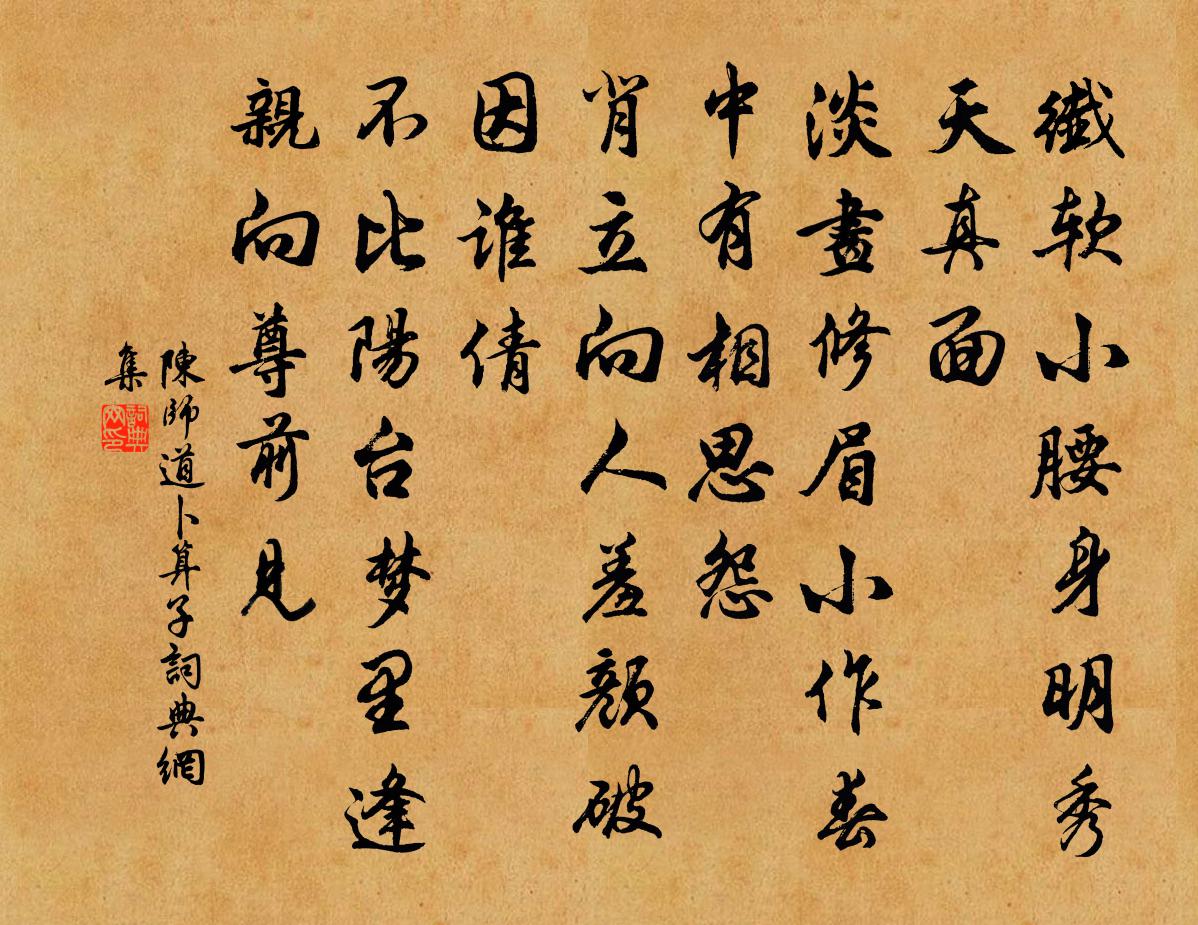 纖软小腰身明秀
天真面
淡畫修眉小作春
中有相思怨
背立向人羞顏破
因谁倩
不比陽台梦里逢
親向尊前見
陳師道卜算子詞典網
集
詞典
网印